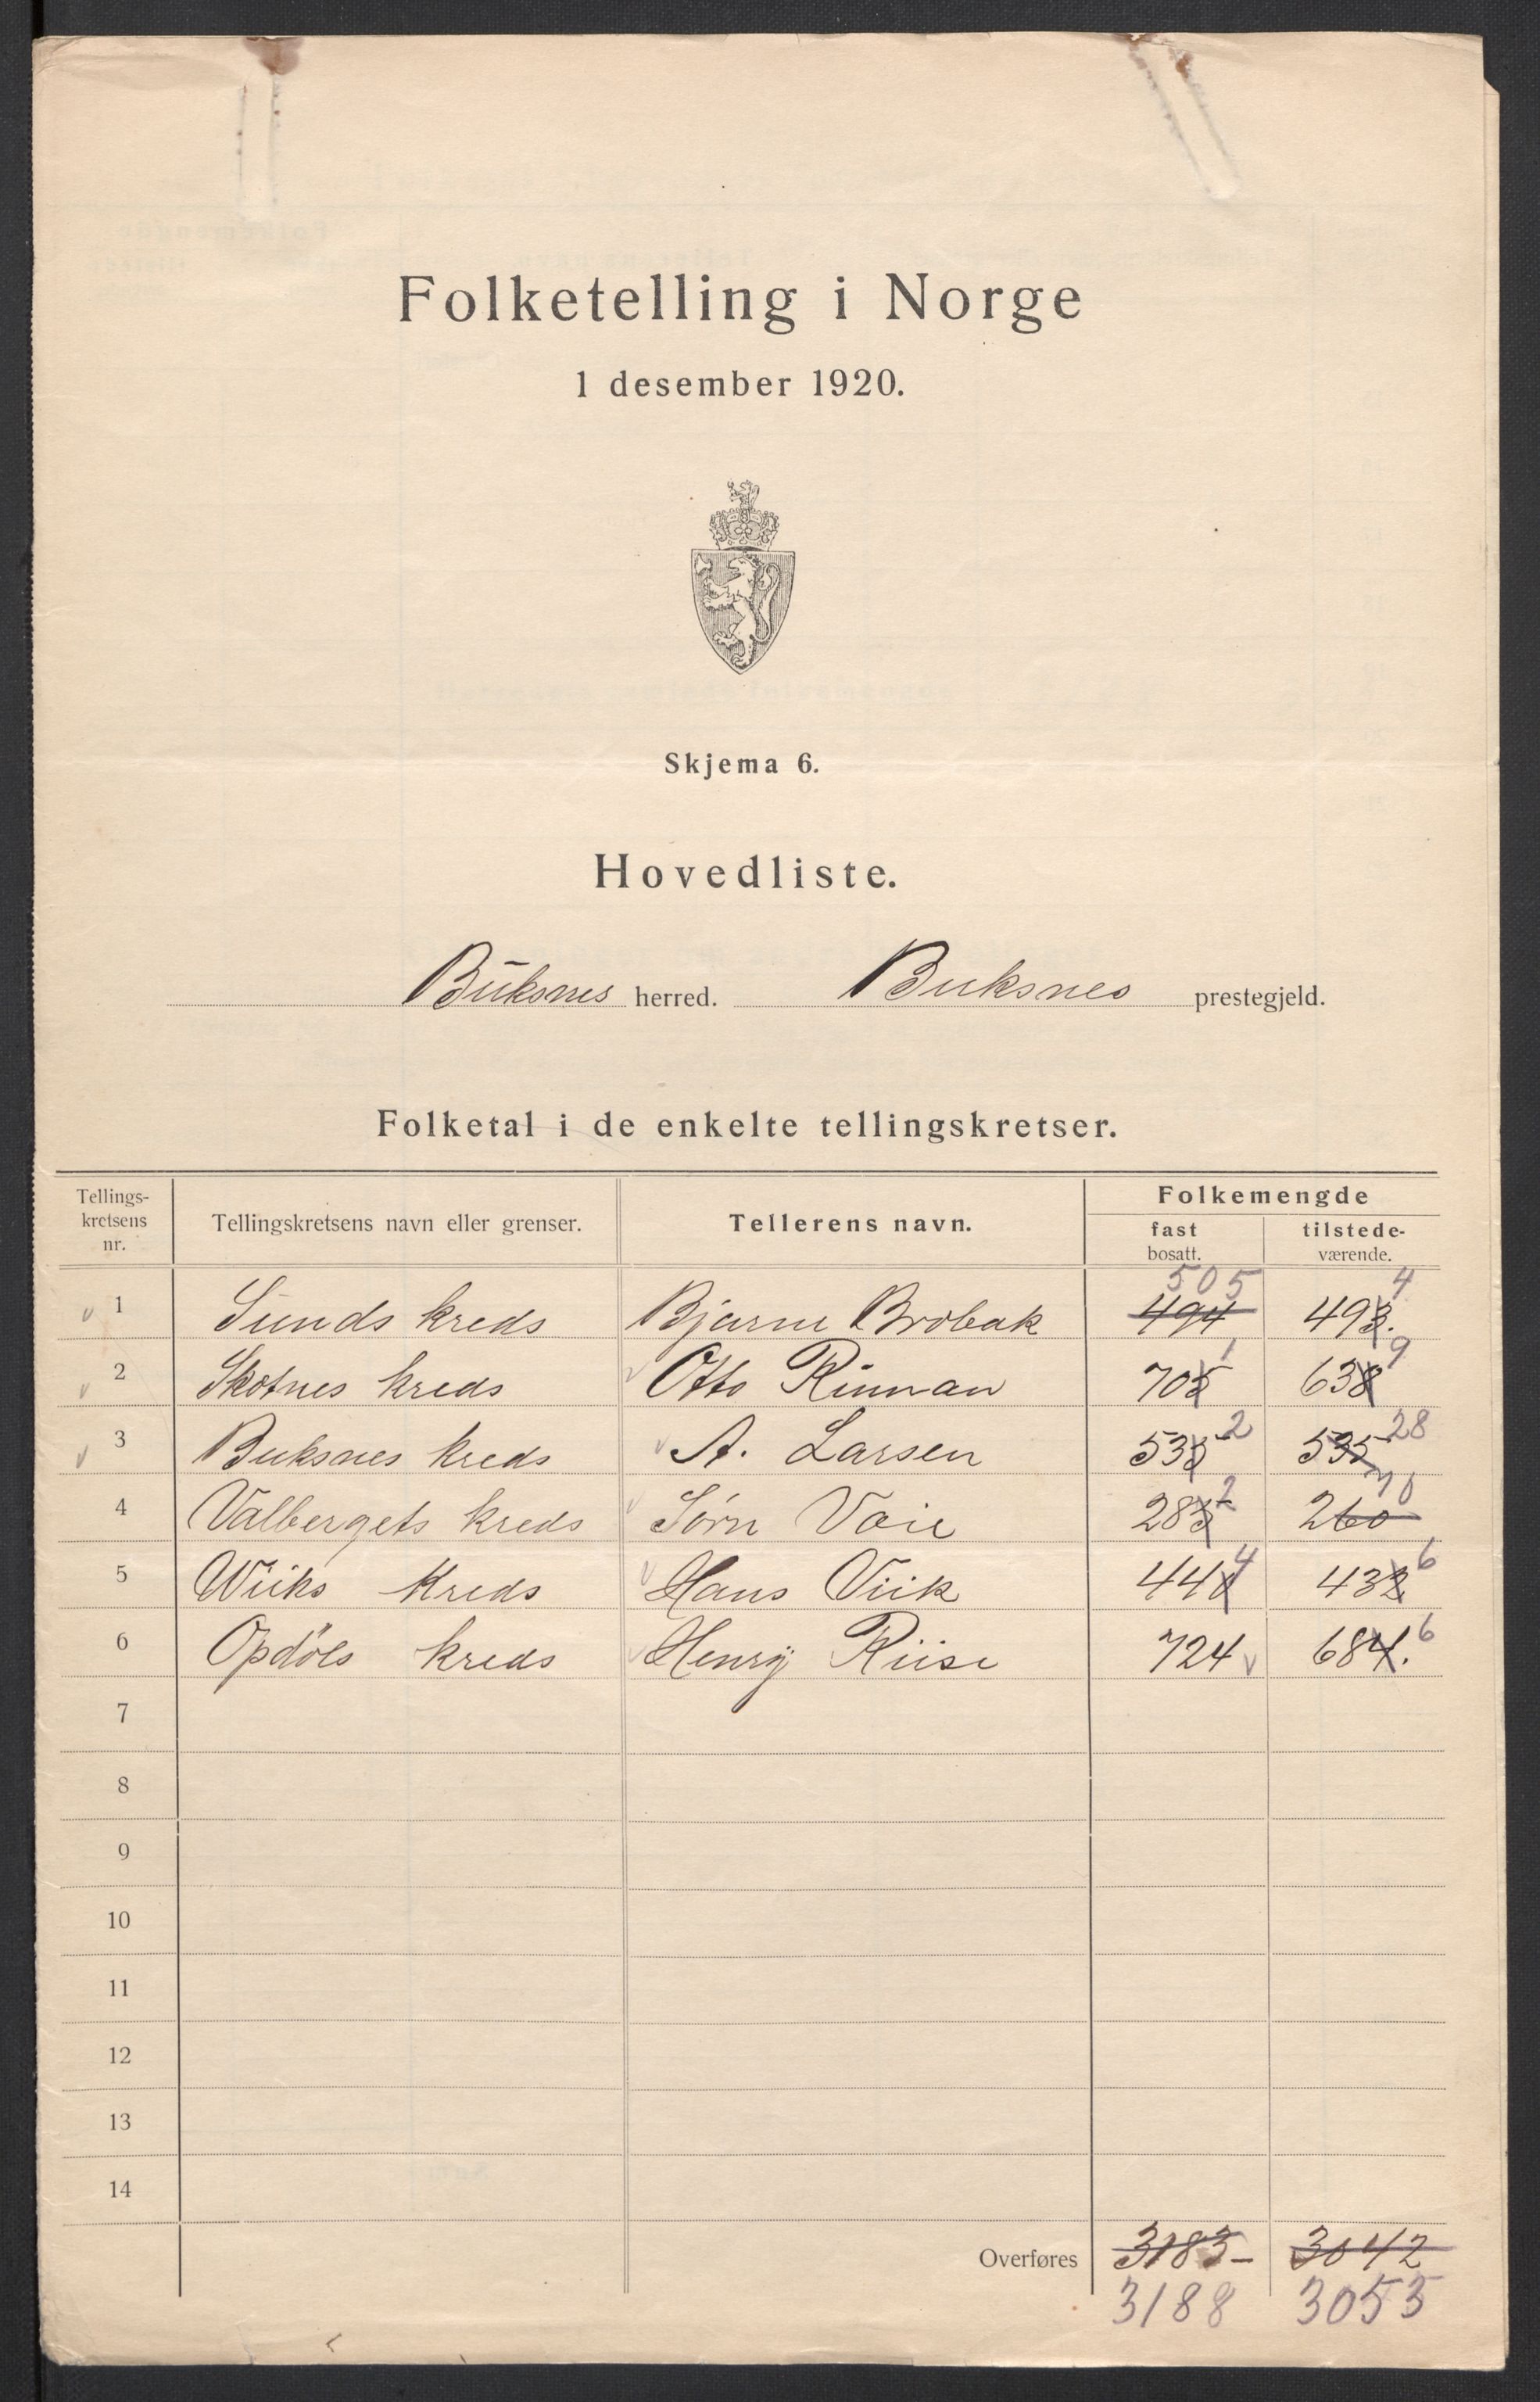 Folketelling i Norge
1 desember 1920.
Skjema 6.
Hovedliste.
Buksnes herred. Buksnes prestegjeld.
Folketal i de enkelte tellingskretser.
Tellings-kretsens nr. Tellingskretsens navn eller grenser. Tellerens navn. Folkemengde fast bosatt. tilstede-værende.
505 4
1 Sunds kreds Bjarne Brobak 494 493.
1 9
2 Skotnes kreds Otto Rinnan 705 638
2 28
3 Buksnes kreds A. Larsen 535 535
2 70
4 Valbergets kreds Sørn Voie 285 260
4 6
5 Wiiks Kreds Hans Viik 440 432
6
6 Opdøls kreds Henry Riise 724 684.
7
8
9
10
11
12
13
14
Overføres 3183- 3042
3188 3053